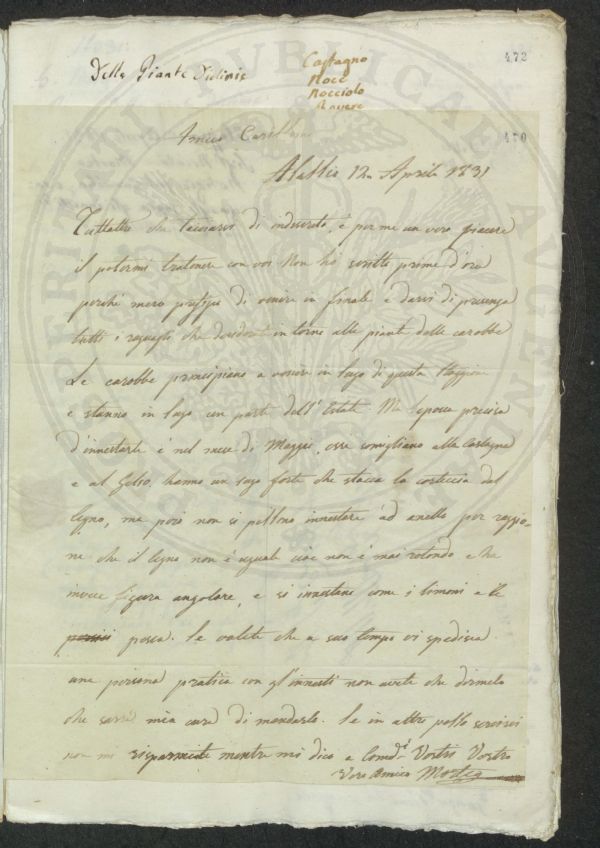 472
Delle Piante
Castagno
Noce
Nocciolo
Rovere
470
Amico Cariss.mo
Alassio 12 Aprile 1831
Tuttaltro che tacciarvi di indiscreto, è per me un vero piacere
il potermi tratenere con voi Non ho scritto prima d'ora
perché mero prefisso di venire in Finale e darvi di presenza
tutti i raguagli che desiderate in torno alle piante delle carobbe
Le carobbe principiano a venire in sugo di questa staggione
e stanno in sugo un parte dell'Estate. Ma l'epoca precisa
d'innestarle è nel mese di Maggio, esse somigliano alla Castagna
e al Gelso, hanno un sugo forte che stacca la corteccia dal
legno, ma però non si possono innestare ad anello per raggio-
ne che il legno non è uguale cioè non è mai rotondo e ha
invece figura angolare, e si innestano come i limoni e le
pesca. Se volete che a suo tempo vi spedisca
una persona pratica con gl'innesti non avete che dirmelo
che sarrà mia cura di mandarla. Se in altro posso servirvi
non mi risparmiate mentre mi dico a Comd.i Vostri Vostro
Vero Amico